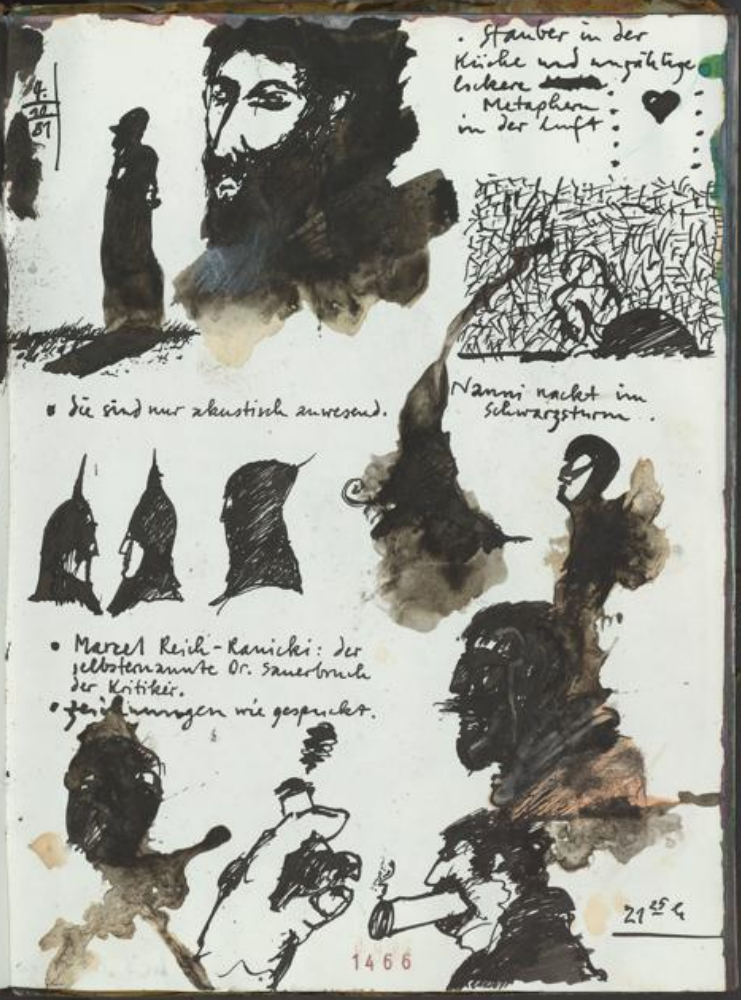 4.
10
81
• Stauber in der
Küche und unzählige
lockere
Metaphern
in der Luft
• die sind nur akustisch anwesend.
Nanni nackt im
Schwarzsturm.
• Marcel Reich-Ranicki: der
selbsternannte Dr. Sauerbruch
der Kritiker.
• zeichnungen wie gespuckt.
21 25 h
1466